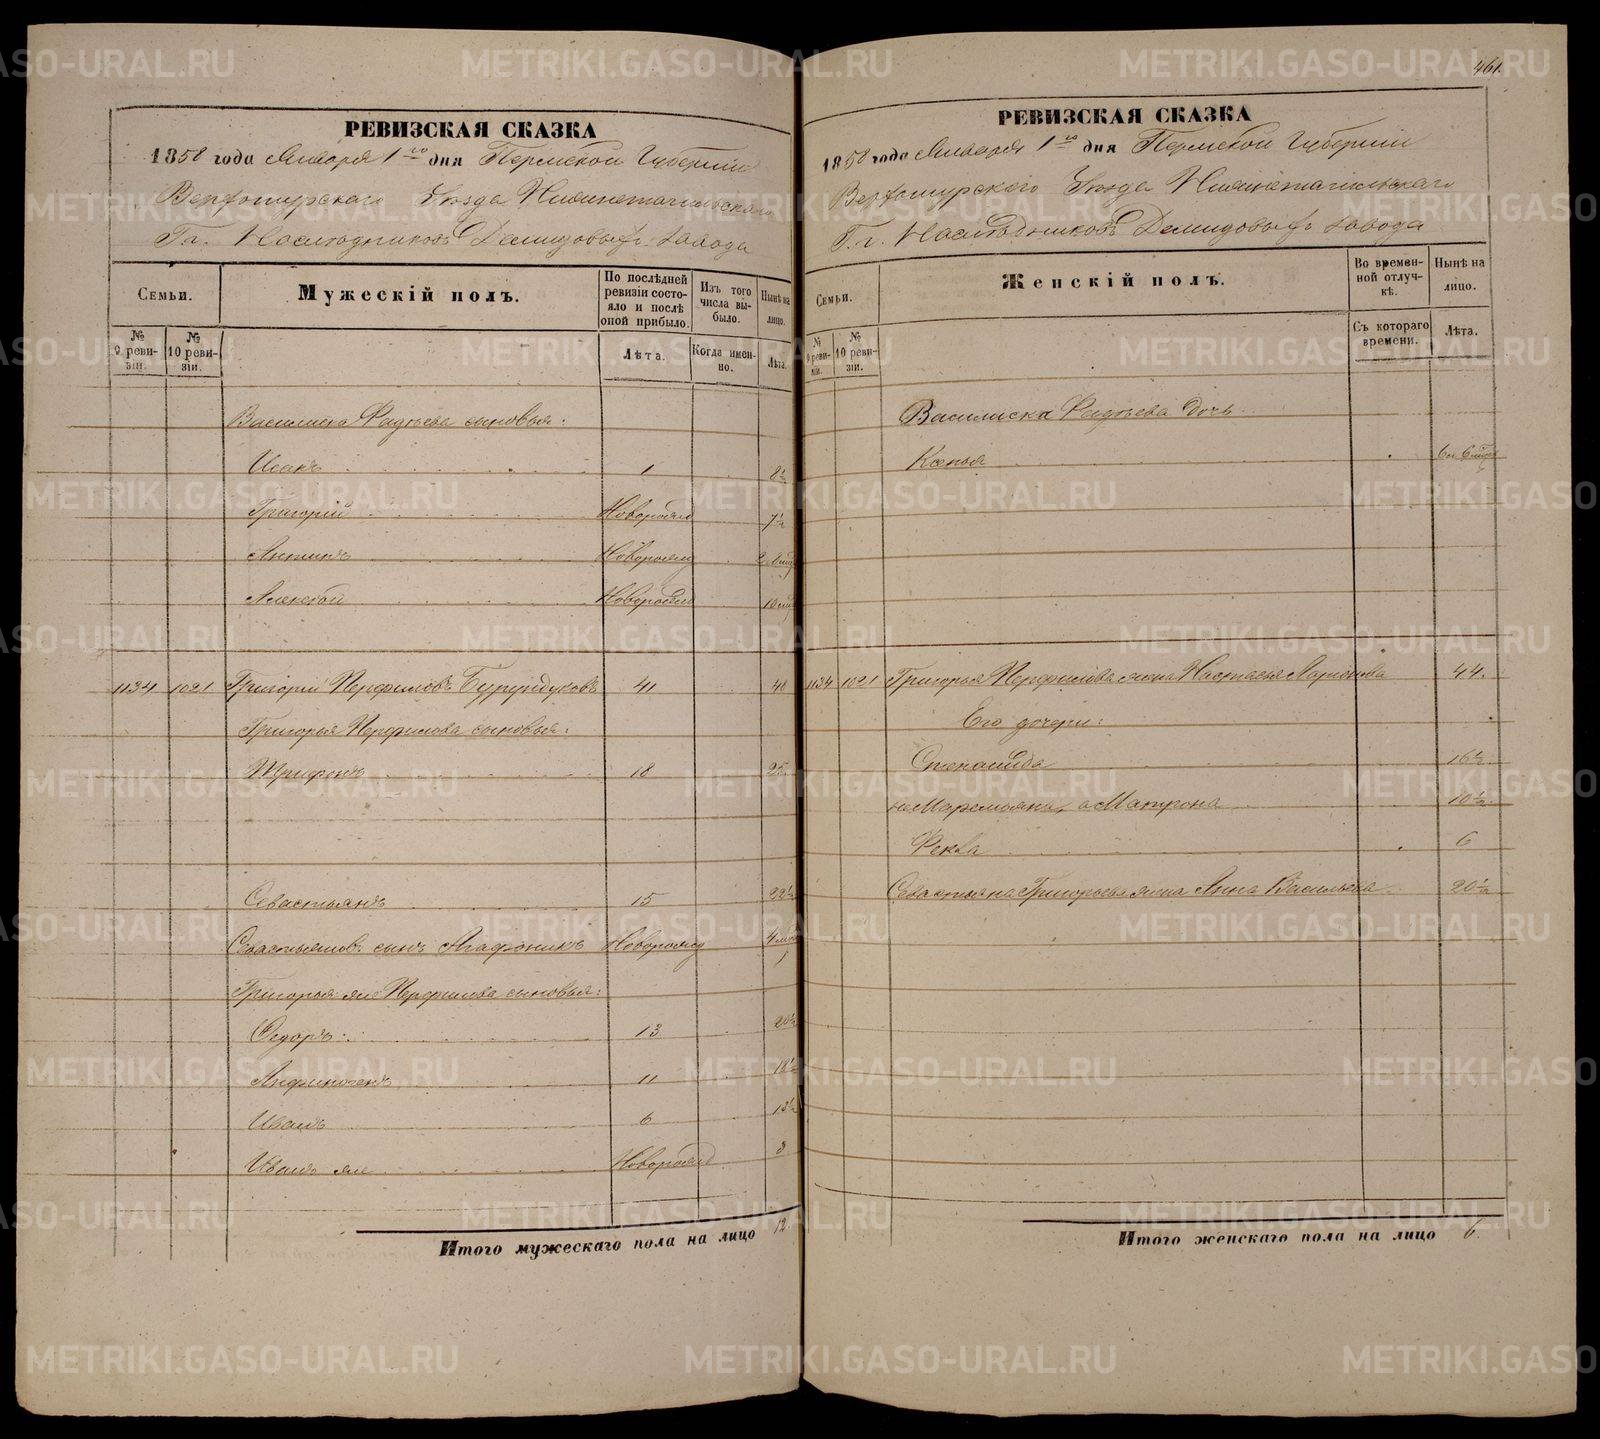 461.
РЕВИЗСКАЯ СКАЗКА
1858 года Января 1го дня Пермской Губернiи
Верхотурскаго Уѣзда Нижнетагильскаго
Гг. Наслѣдниковъ Демидовыхъ завода
Семьи.
Мужескiй полъ.
По послѣдней ревизiи состояло и послѣ оной прибыло.
Изъ того числа выбыло.
Нынѣ на лицо.
№ 9 ревизiи.
№ 10 ревизiи.
Лѣта.
Когда именно.
Лѣта.
Василиска Фадѣева сыновья:
Исакъ 1 8½
Григорiй Новорожд 7½
Антипъ Новорожд
Алексѣй Новорожд
1134 1021 Григорiй Перфиловъ Бурундуковъ 41
Григорья Перфилова сыновья:
Трифонъ 18 25
Севастьянъ 15 22½
Севастьяновъ сынъ Агафоникъ Новорожд
Григорья же Перфилова сыновья:
Федоръ 13 20½
Анфиногенъ 11 18½
Иванъ 6 13½
Иванъ же Новорожд 3
Итого мужескаго пола на лицо 12.
РЕВИЗСКАЯ СКАЗКА
1858 года Января 1го дня Пермской Губернiи
Верхотурскаго Уѣзда Нижнетагильскаго
Г.г. Наслѣдниковъ Демидовыхъ завода
Семьи.
Женскiй полъ.
Во временной отлучкѣ.
Нынѣ на лицо.
№ 9 ревизiи.
№ 10 ревизiи.
Съ котораго времени.
Лѣта.
Василиска Фадѣева дочь
Ксенья
1134 1021 Григорья Перфилова жена Настасья Ларiонова 44.
Его дочери:
Степанида 16½
Маремьяна, а Матрона 10½
Фекла 6
Севастьяна Григорьева жена Анна Васильева 20½
Итого женскаго пола на лицо 6.
METRIKI.GASO-URAL.RU